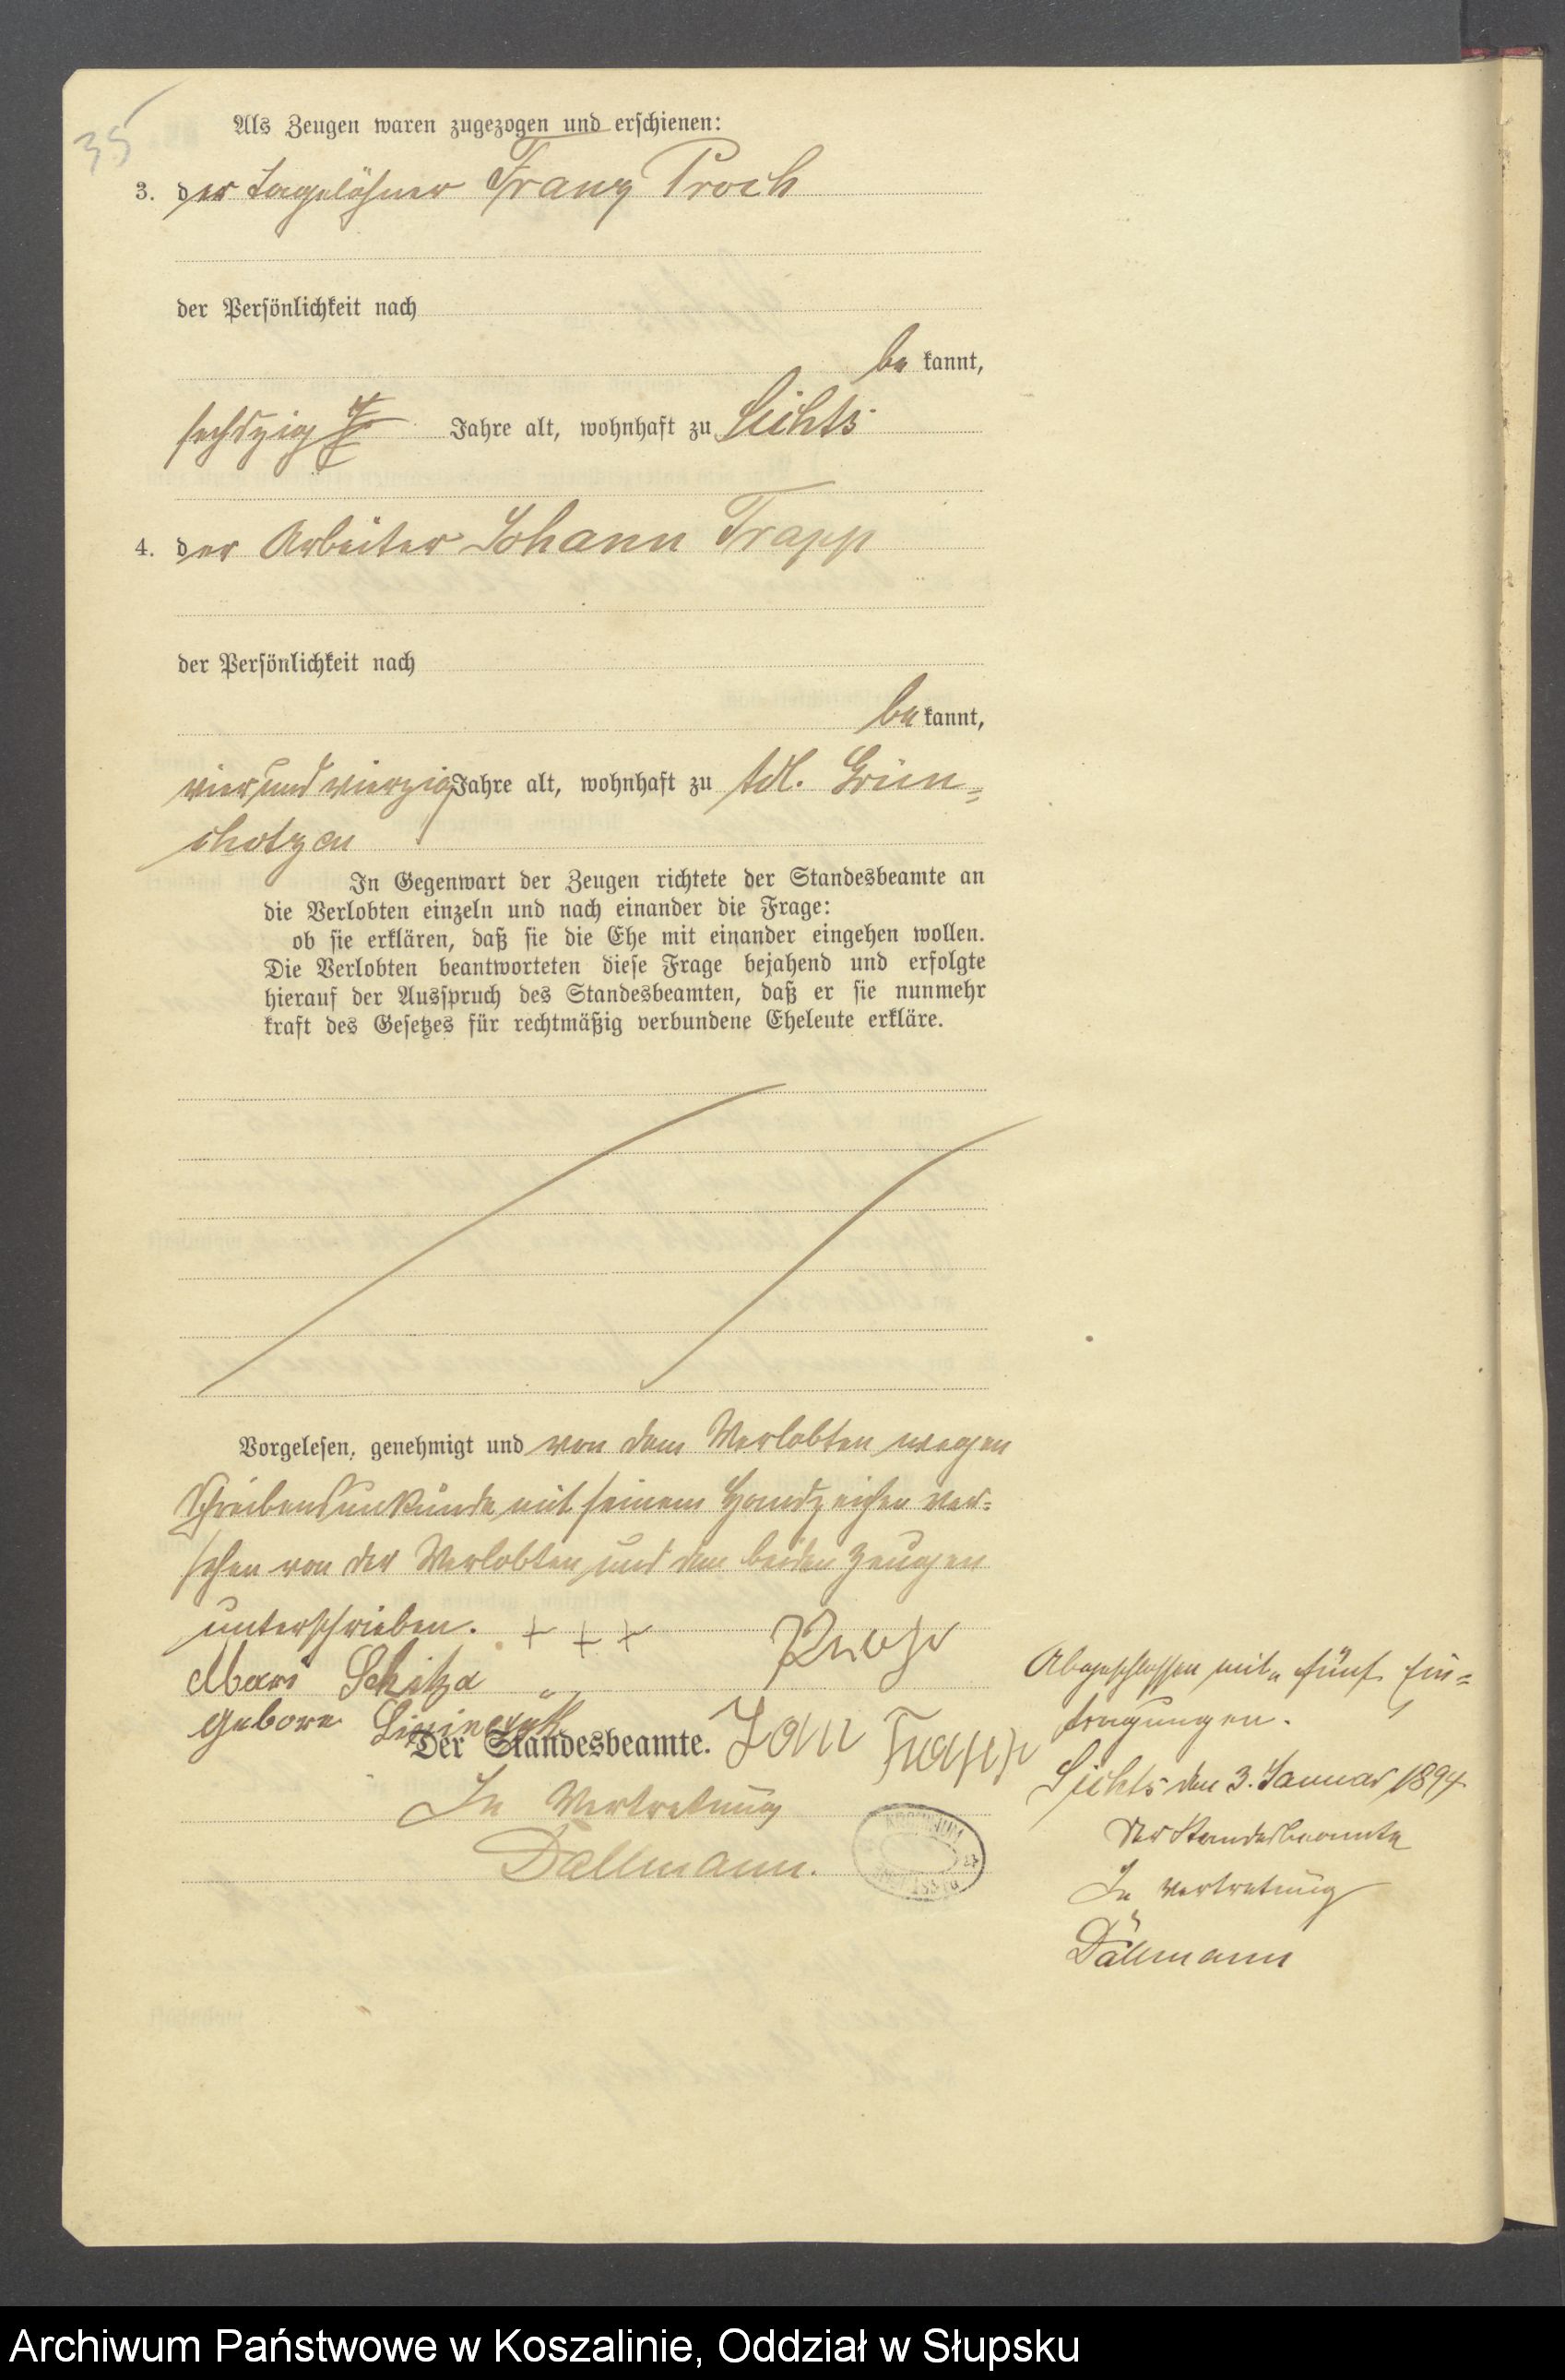 35
Als Zeugen waren zugezogen und erschienen:
3. der Tagelöhner Franz Proch
der Persönlichkeit nach
be kannt,
sechszig Jahre alt, wohnhaft zu Lichts
4. der Arbeiter Johann Trapp
der Persönlichkeit nach
be kannt,
vier und vierzig Jahre alt, wohnhaft zu Adl. Grün-
chotzen
In Gegenwart der Zeugen richtete der Standesbeamte an
die Verlobten einzeln und nach einander die Frage:
ob sie erklären, daß sie die Ehe mit einander eingehen wollen.
Die Verlobten beantworteten diese Frage bejahend und erfolgte
hierauf der Ausspruch des Standesbeamten, daß er sie nunmehr
kraft des Gesetzes für rechtmäßig verbundene Eheleute erkläre.
Vorgelesen, genehmigt und von dem Verlobten wegen
Schreibensunkunde mit seinem Handzeichen ver-
sehen von der Verlobten und den beiden Zeugen
unterschrieben. + + +
Mari Schitza
gebore
Der Standesbeamte. Jan Trapp
In Vertretung
Dallmann.
Abgeschlossen mit fünf Ein-
tragungen.
Lichts den 3. Januar 1894
Der Standesbeamte
In Vertretung
Dallmann
Archiwum Państwowe w Koszalinie, Oddział w Słupsku